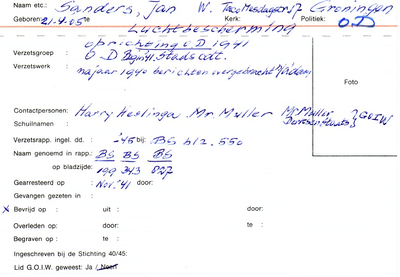 Naam etc.: Sanders, Jan W. Taco Mesdagstr. 72 Groningen
Geboren: 21-4-05 te Kerk: Politiek: O.D
Luchtbescherming
oprichting O.D 1941
Verzetsgroep : O-D Begin 41. Stadsedt.
Verzetswerk : najaar 1940 berichten overgebracht
Foto
Contactpersonen: Harry Heslinga. Mr. Muller Mr. Muller
Schuilnamen : } GOIW
Verzetsrapp. ingel. dd. : '45 bij: BS blz. 550
Naam genoemd in rapp.: BS BS BS
op bladzijde: 199 343 827
Gearresteerd op : Nov. '41 door:
Gevangen gezeten in :
x Bevrijd op : uit : door:
Overleden op : door: te :
Begraven op : te :
Ingeschreven bij de Stichting 40/45:
Lid G.O.I.W. geweest: Ja / Neen